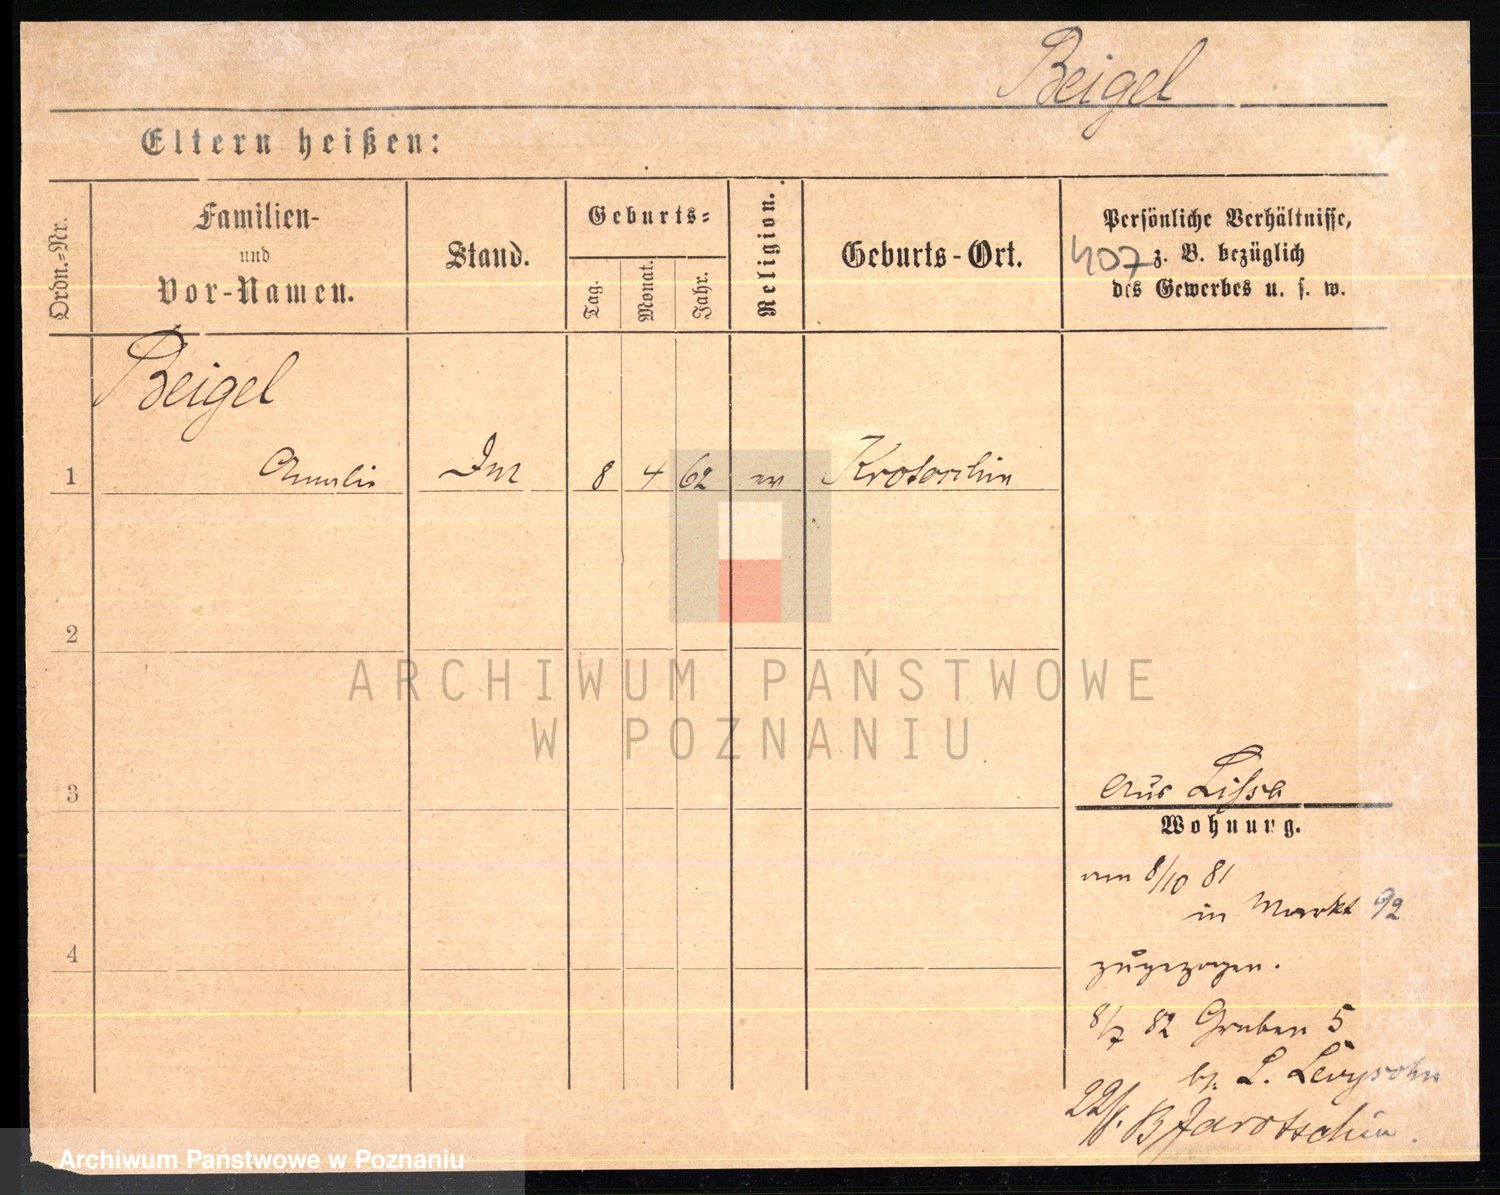 Beigel
Eltern heißen:
Ordn.-Nr.
Familien-
und
Vor-Namen.
Stand.
Geburts-
Tag.
Monat.
Jahr.
Religion.
Geburts-Ort.
Persönliche Verhältnisse,
z. B. bezüglich
des Gewerbes u. s. w.
407
Beigel
1 Amalie 8 4 62 ev Krotoschin
2
ARCHIWUM PAŃSTWOWE
W POZNANIU
3
aus Lissa
Wohnung.
am 8/10 81
in Markt 92
4
zugezogen.
8/7 82 Graben 5
bei L. Levysohn
Jarotschin.
Archiwum Państwowe w Poznaniu